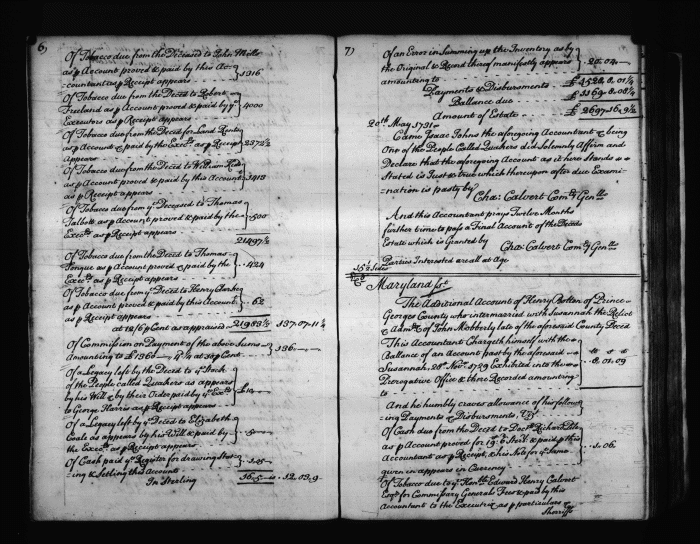 6)
Of Tobacco due from the Deceased to John Mills
as p Account proved & paid by this Ac-
-countant as p Receipt appears - - - 1316
Of Tobacco due from the Deced to Robert
Freeland as p Account proved & paid by ye
Executors as p Receipt appears 4000
Of Tobacco due from the Deced for Land Rents
as p Account & paid by the Execrs as p Receipt 2372½
Appears
Of Tobacco due from the Deced to William
as p Account proved & paid by this Accountant 3413
as p Receipt appears
Of Tobacco due from ye Deced to Thomas
Talbott as p Account proved & paid by the 500
Execrs as p Receipt appears
21497½
Of Tobacco due from the Deced to Thomas
Tongue as p Account proved & paid by the 424
Execrs as p Receipt appears
Of Tobacco due from ye Deced to Henry
as p Account proved & paid by this Accountant 62
as p Receipt appears
at 12/6 p Cent as appraised 21983½ 137.07.11½
Of Commission on Payment of the above Sums
Amounting to £1360 136
Of a Legacy left by the Deced to
of the People called Quakers as appears
by his Will & by their Order paid by ye Execrs £10
to George Harris as p Receipt appears
Of a Legacy left by ye Deced to Elizabeth
Coale as appears by his Will & paid by
the Execrs as p Receipt appears
Of Cash paid ye Register for drawing Stat-
-ing & Settling this Account
In Sterling 12.03.9
7)
Of an Error in Summing up the Inventory as by
the Original & Record thereof manifestly appears 20.04
amounting to
Payments & Disbursments £1528.8.01¼
Ballance due £1169.8.08¼
Amount of Estate £2697.16.9½
20th May 1731
Came Isaac Johns the aforegoing Accountant & being
One of the People Called Quakers did Solemnly Affirm and
Declare that the aforegoing Account as it here Stands
Stated is Just & true which thereupon after due Exami-
-nation is past by
Chas: Calvert Comry Genll
And this Accountant prays Twelve Months
further time to pass a Final Account of the Deceds
Estate which is Granted by
Chas Calvert Comry Genll
Parties Interested are all at Age
15½ Sides
Maryland ss.
The Additional Account of Henry Botten of Prince
Georges County who intermarried with Susannah the Relict
& Admx of John Mobberly late of the aforesaid County Deced
This Accountant Chargeth himself with the
Ballance of an Account past by the aforesaid
Susannah, 28th Novr 1729 Exhibited into the 8.01.09
Prerogative Office & there Recorded amounting
to
And he humbly craves allowance of his follow-
-ing Payments & Disbursments, Vizt
Of Cash due from the Deced to Doctr Richard
as p Account proved for & paid p this
Accountant as p Receipt, & his Note for ye Same 1.06
given in appears in Currency
Of Tobacco due to ye Honble Edward Henry Calvert
Esqr for Commissary Generals Fees & paid by this
Accountant to the Executrix as p particulars
Sherriffs